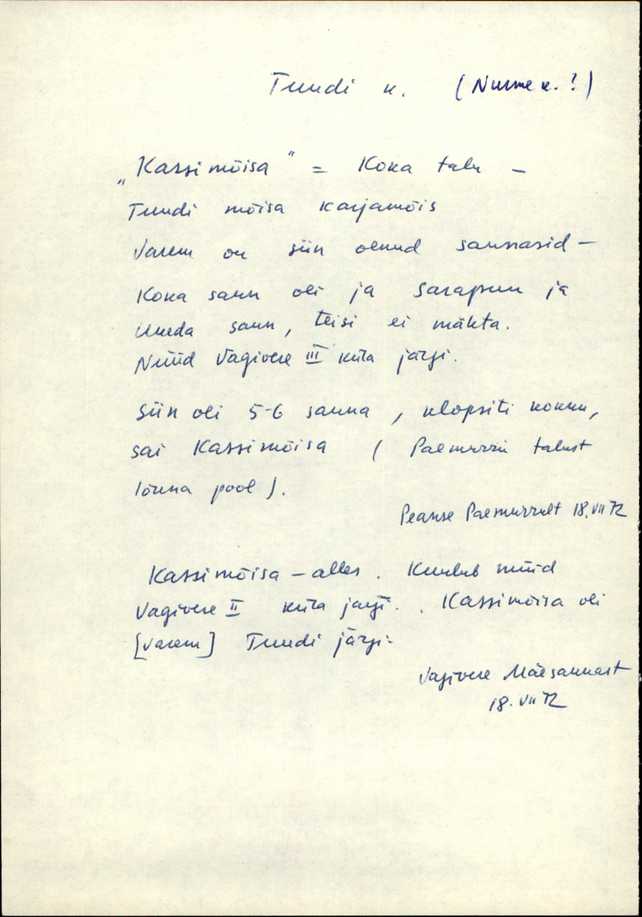 Tuudi k. (Nurme k.?)
„Kassimõisa" = Koka talu –
Tuudi mõisa karjamõis
Varem on siin olnud saunasid –
Koka saun oli ja Sarapuu ja
Uueda saun, teisi ei mäleta.
Nüüd Vagivere III küla järgi.
Siin oli 5-6 sauna, klopsiti kokku,
sai Kassimõisa ( Paemurru talust
lõuna pool ).
Peanse Paemurrult 18.VII 72
Kassimõisa – alles. Kuulub nüüd
Vagivere II küla järgi. Kassimõisa oli
[varem] Tuudi järgi.
Vagivere Mäesaunast
18. VII 72